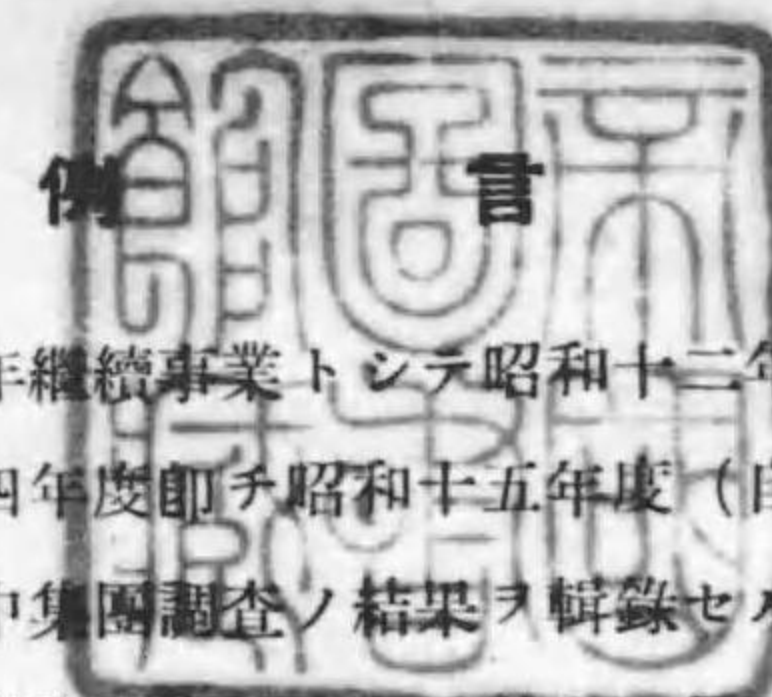 例言
年繼續事業トシテ昭和十二年
四年度卽チ昭和十五年度（自
中集團調査ノ結果ヲ輯錄セル